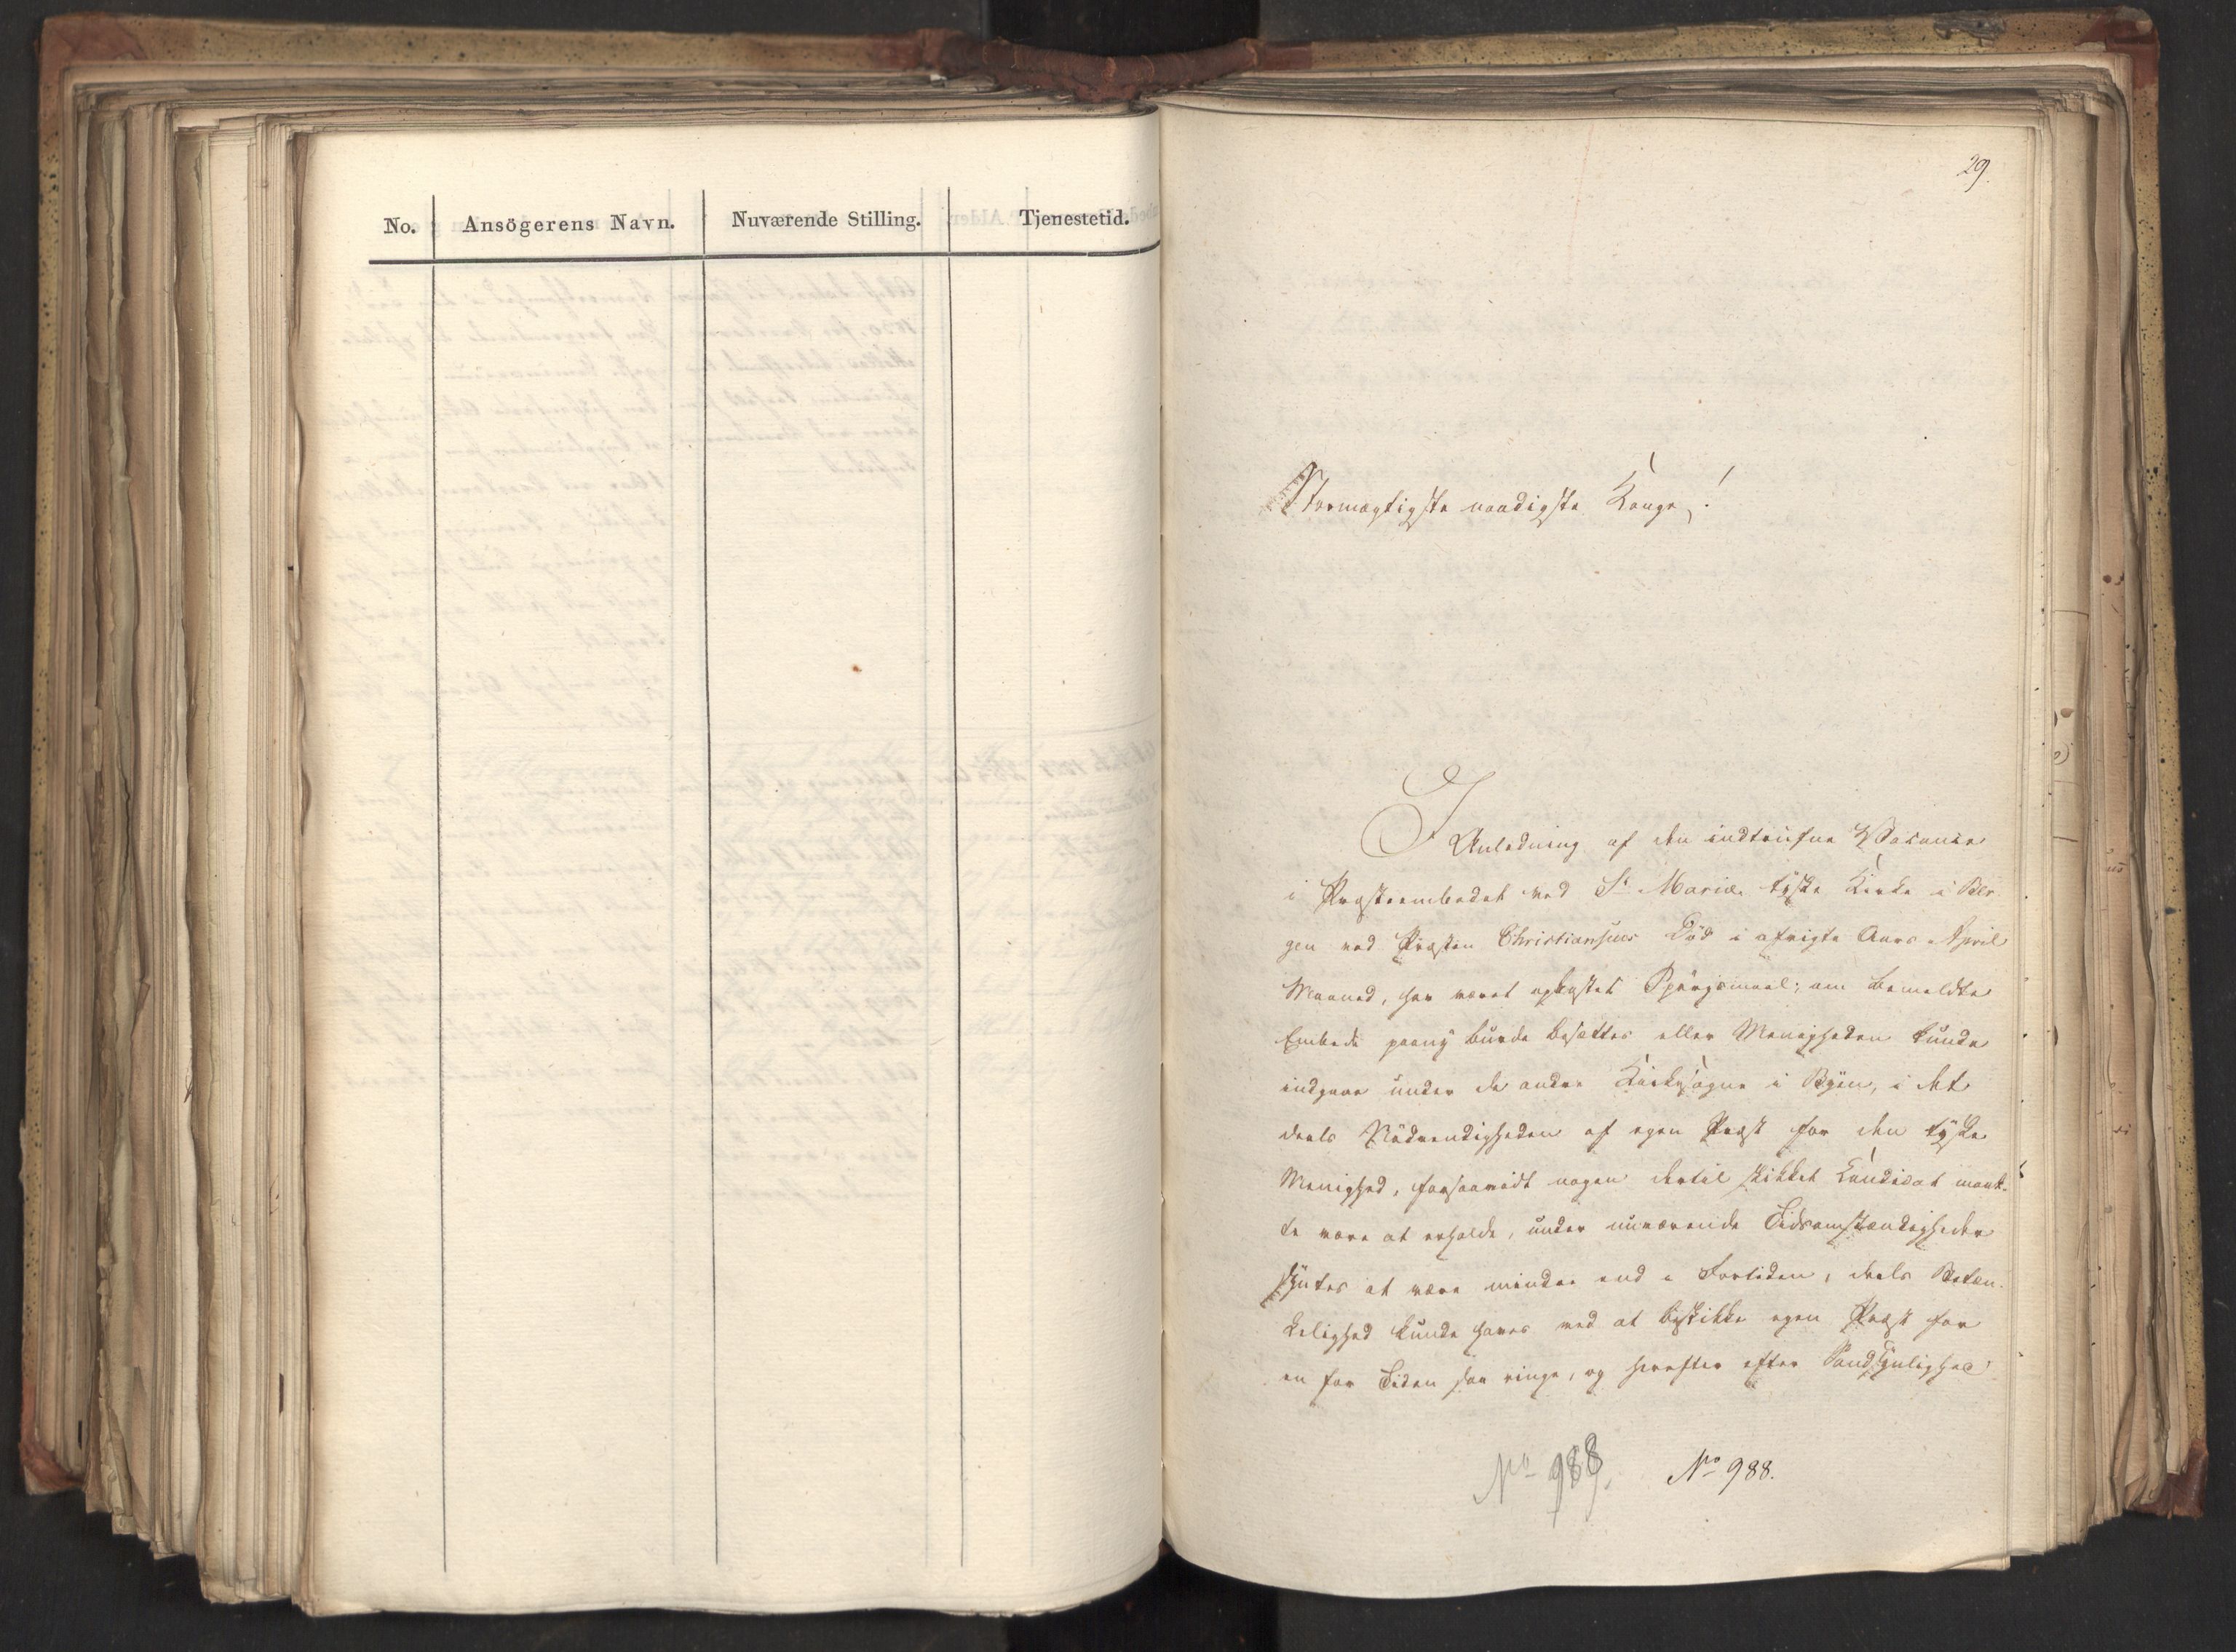 No. Ansögerens Navn. Nuværende Stilling. Tjenestetid.
29.
Stormægtigste naadigste Konge!
I Anledning af den indtrufne Vacance
i Præsteembedet ved St Mariæ tÿske Kirke i Ber-
gen ved Præsten Christiansens Död i afvigte Aars April
Maaned, har været opkastet Spörgsmaal; om bemeldte
Embede paanÿ burde besættes eller Menigheden kunde
indgaae under de andre Kirkesogne i Bÿen, i det
deels Nödvendigheden af egen Præst for den tÿske
Menighed, forsaavidt nogen dertil skikket Candidat maat-
te være at erholde, under nuværende Tidsomstændigheder
sÿntes at være mindre end i Fortiden, deels Betæn-
kelighed kunde haves ved at beskikke egen Præst for
en for Tiden saa ringe, og herefter efter Sandsÿnlighed
No 988. No 988.